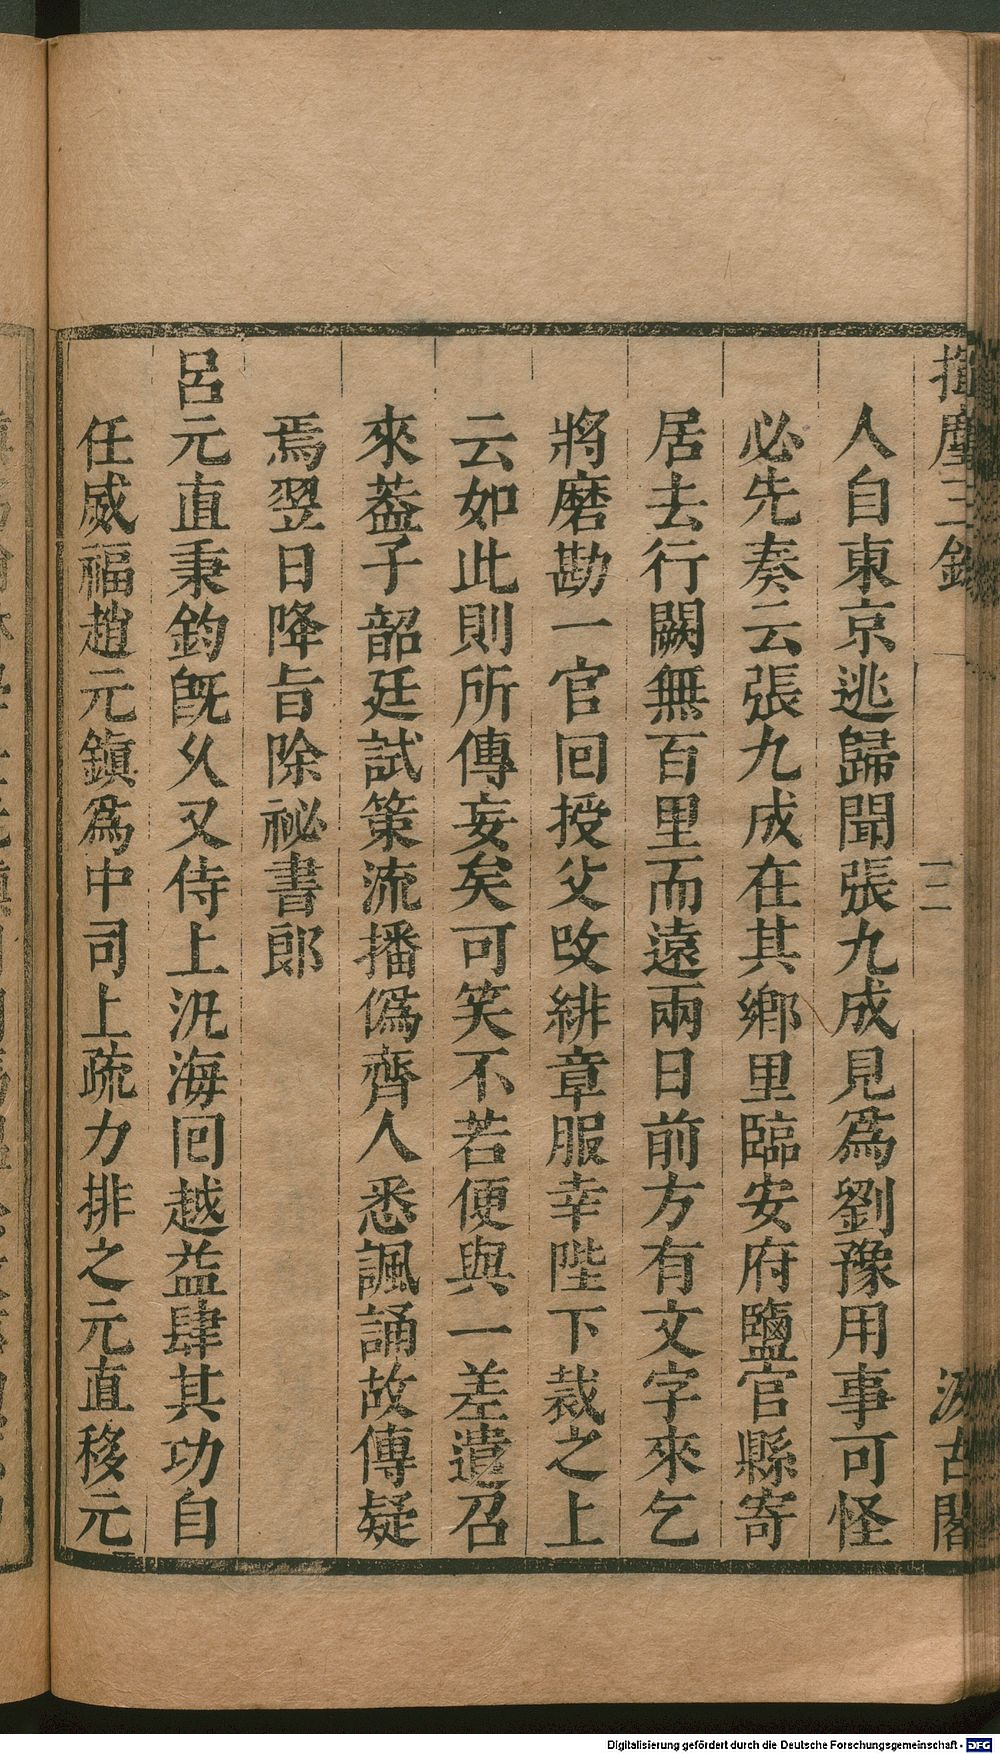 揮麈三錄
二
汲古閣
人自東京逃歸聞張九成見爲劉豫用事可怪
必先奏云張九成在其鄉里臨安府鹽官縣寄
居去行闕無百里而遠兩日前方有文字來乞
將磨勘一官回授父改緋章服幸陛下裁之上
云如此則所傳妄矣可笑不若便與一差遣召
來葢子韶廷試策流播僞齊人悉諷誦故傳疑
焉翌日降旨除祕書郎
呂元直秉鈞旣久又侍上汎海回越益肆其功自
任威福趙元鎭爲中司上疏力排之元直移元
Digitalisierung gefördert durch die Deutsche Forschungsgemeinschaft - DFG